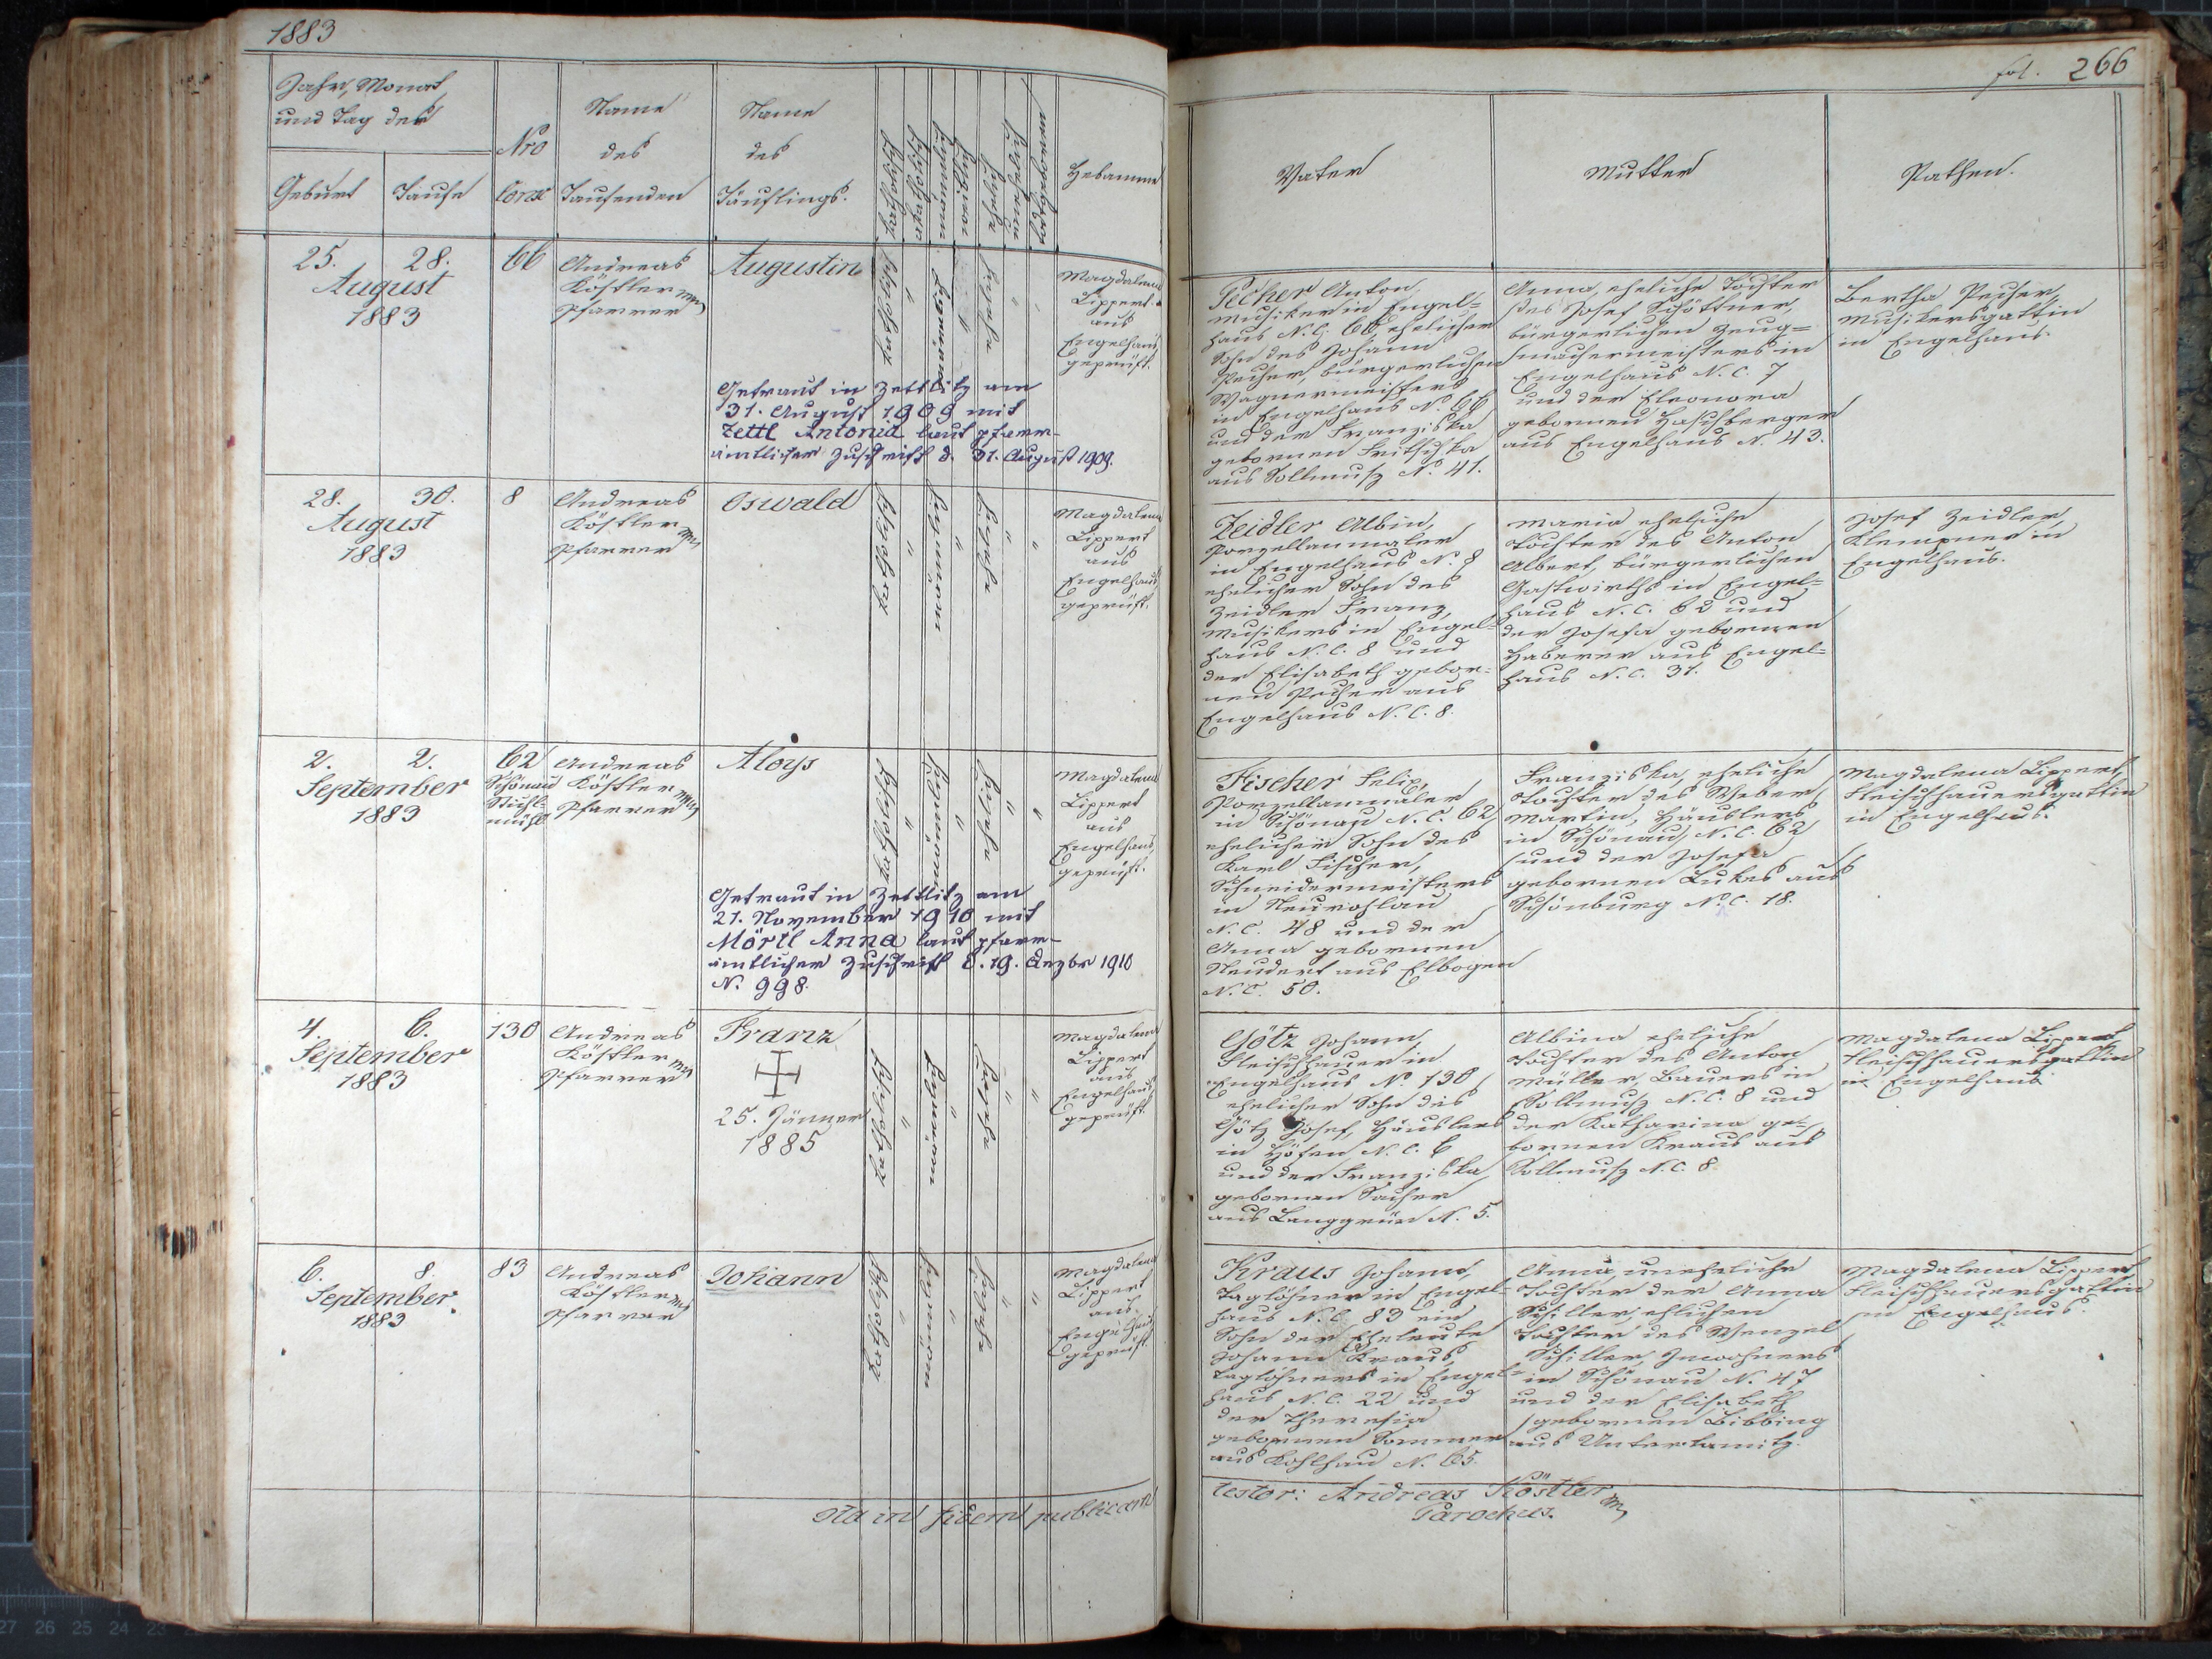 1883
Jahr, Monat
und Tag der
Geburt
Taufe
Nro
Name
des
Taufenden
Name
des
Täuflings.
katholisch
akatholisch
männlich
eheliche
uneheliche
todtgeboren
Hebamme
25. 28.
August
1883
66
Andreas
Köstler
Pfarrer
Augustin
katholisch
männlich
eheliche
Magdalena
Lippert
aus
Engelhaus,
geprüft.
Getraut in Zettlitz am
31. August 1909 mit
Zettl Antonia laut pfarr-
ämtlicher Zuschrift d. 31. August 1909.
28. 30.
August
1883
8
Andreas
Köstler
Pfarrer
Oswald
katholisch
männlich
eheliche
Magdalena
Lippert
aus
Engelhaus
geprüft.
2. 2.
September
1883
62
Schönau
Andreas
Köstler
Pfarrer
Aloys
katholisch
männlich
eheliche
Magdalena
Lippert
aus
Engelhaus,
geprüft.
Getraut in Zettlitz am
21. November 1910 mit
Mörtl Anna laut pfarr-
ämtlicher Zuschrift d. 19. Dezbr 1910
N. 998.
4. 6.
September
1883
130
Andreas
Köstler
Pfarrer
Franz
25. Jänner
1885
katholisch
männlich
eheliche
Magdalena
Lippert
aus
Engelhaus
geprüft.
6. 8.
September
1883
83
Andreas
Köstler
Pfarrer
Johann
katholisch
männlich
eheliche
Magdalena
Lippert
aus
Engelhaus
geprüft.
Ita in fidem publicam
fol. 266
Vater
Mutter
Pathen.
Pecher Anton,
Musiker in Engel=
haus N.C. 66, ehelicher
Sohn des Johann
Pecher, bürgerlichen
Wagnermeisters
in Engelhaus N. 66
und der Franziska
gebornen Fritschka
aus Sollmus N. 41.
Anna, eheliche Tochter
des Josef Schöttner,
bürgerlichen Zeug=
machermeisters in
Engelhaus N.C. 7
und der Eleonora
gebornen Haschberger
aus Engelhaus N. 43.
Bertha Pecher,
Musikersgattin
in Engelhaus.
Zeidler Albin,
Porzellanmaler
in Engelhaus N. 8
ehelicher Sohn des
Zeidler Franz,
Musikers in Engel=
haus N.C. 8 und
der Elisabeth gebor=
nen Pecher aus
Engelhaus N.C. 8.
Maria eheliche
Tochter des Anton
Albert, bürgerlichen
Gastwirths in Engel=
haus N.C. 62 und
der Josefa gebornen
Haberer aus Engel=
haus N.C. 31.
Josef Zeidler,
Klempner in
Engelhaus.
Fischer Felix,
Porzellanmaler
in Schönau N.C. 62,
ehelicher Sohn des
Karl Fischer,
Schneidermeisters
in Neurohlau
N.C. 48 und der
Anna gebornen
Neudert aus Elbogen
N.C. 50.
Franziska, eheliche
Tochter des Weber
Martin, Häuslers
in Schönau N.C. 62
und der Josefa
gebornen Lukas aus
Schönburg N.C. 18.
Magdalena Lippert,
Fleischhauersgattin
in Engelhaus.
Götz Johann,
Fleischhauer in
Engelhaus N. 130
ehelicher Sohn des
Götz Josef, Häuslers
in Höfen N.C. 6
und der Franziska
gebornen Sacher
aus Langgrün N. 5.
Albina eheliche
Tochter des Anton
Müller, Bauers in
Sollmus N.C. 8 und
der Katharina ge=
bornen Kraus aus
Sollmus N.C. 8.
Magdalena Lippert,
Fleischhauersgattin
in Engelhaus
Kraus Johann,
Taglöhner in Engel=
haus N.C. 83 ein
Sohn der Eheleute
Johann Kraus,
Taglöhners in Engel=
haus N.C. 22 und
der Theresia
gebornen Sommer
aus Kohlhau N. 65.
Anna, uneheliche
Tochter der Anna
Schiller, ehlichen
Tochter des Wenzel
Schiller, Inwohners
in Schönau N. 47
und der Elisabeth
gebornen Bibbing
aus Unterlomitz.
Magdalena Lippert
Fleischhauersgattin
in Engelhaus.
testor: Andreas Köstler
Parochus.
27 26 25 24 23